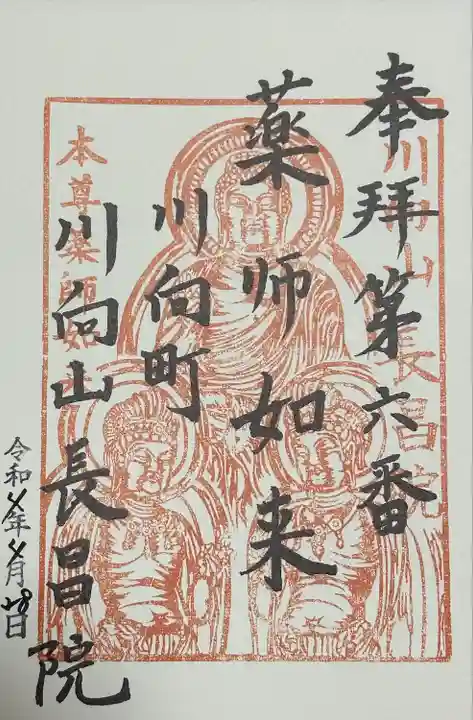 奉拝第六番
薬师如来
川向町
川向山長昌院
令和
年
月
日
川向山長昌院
本尊薬師如来